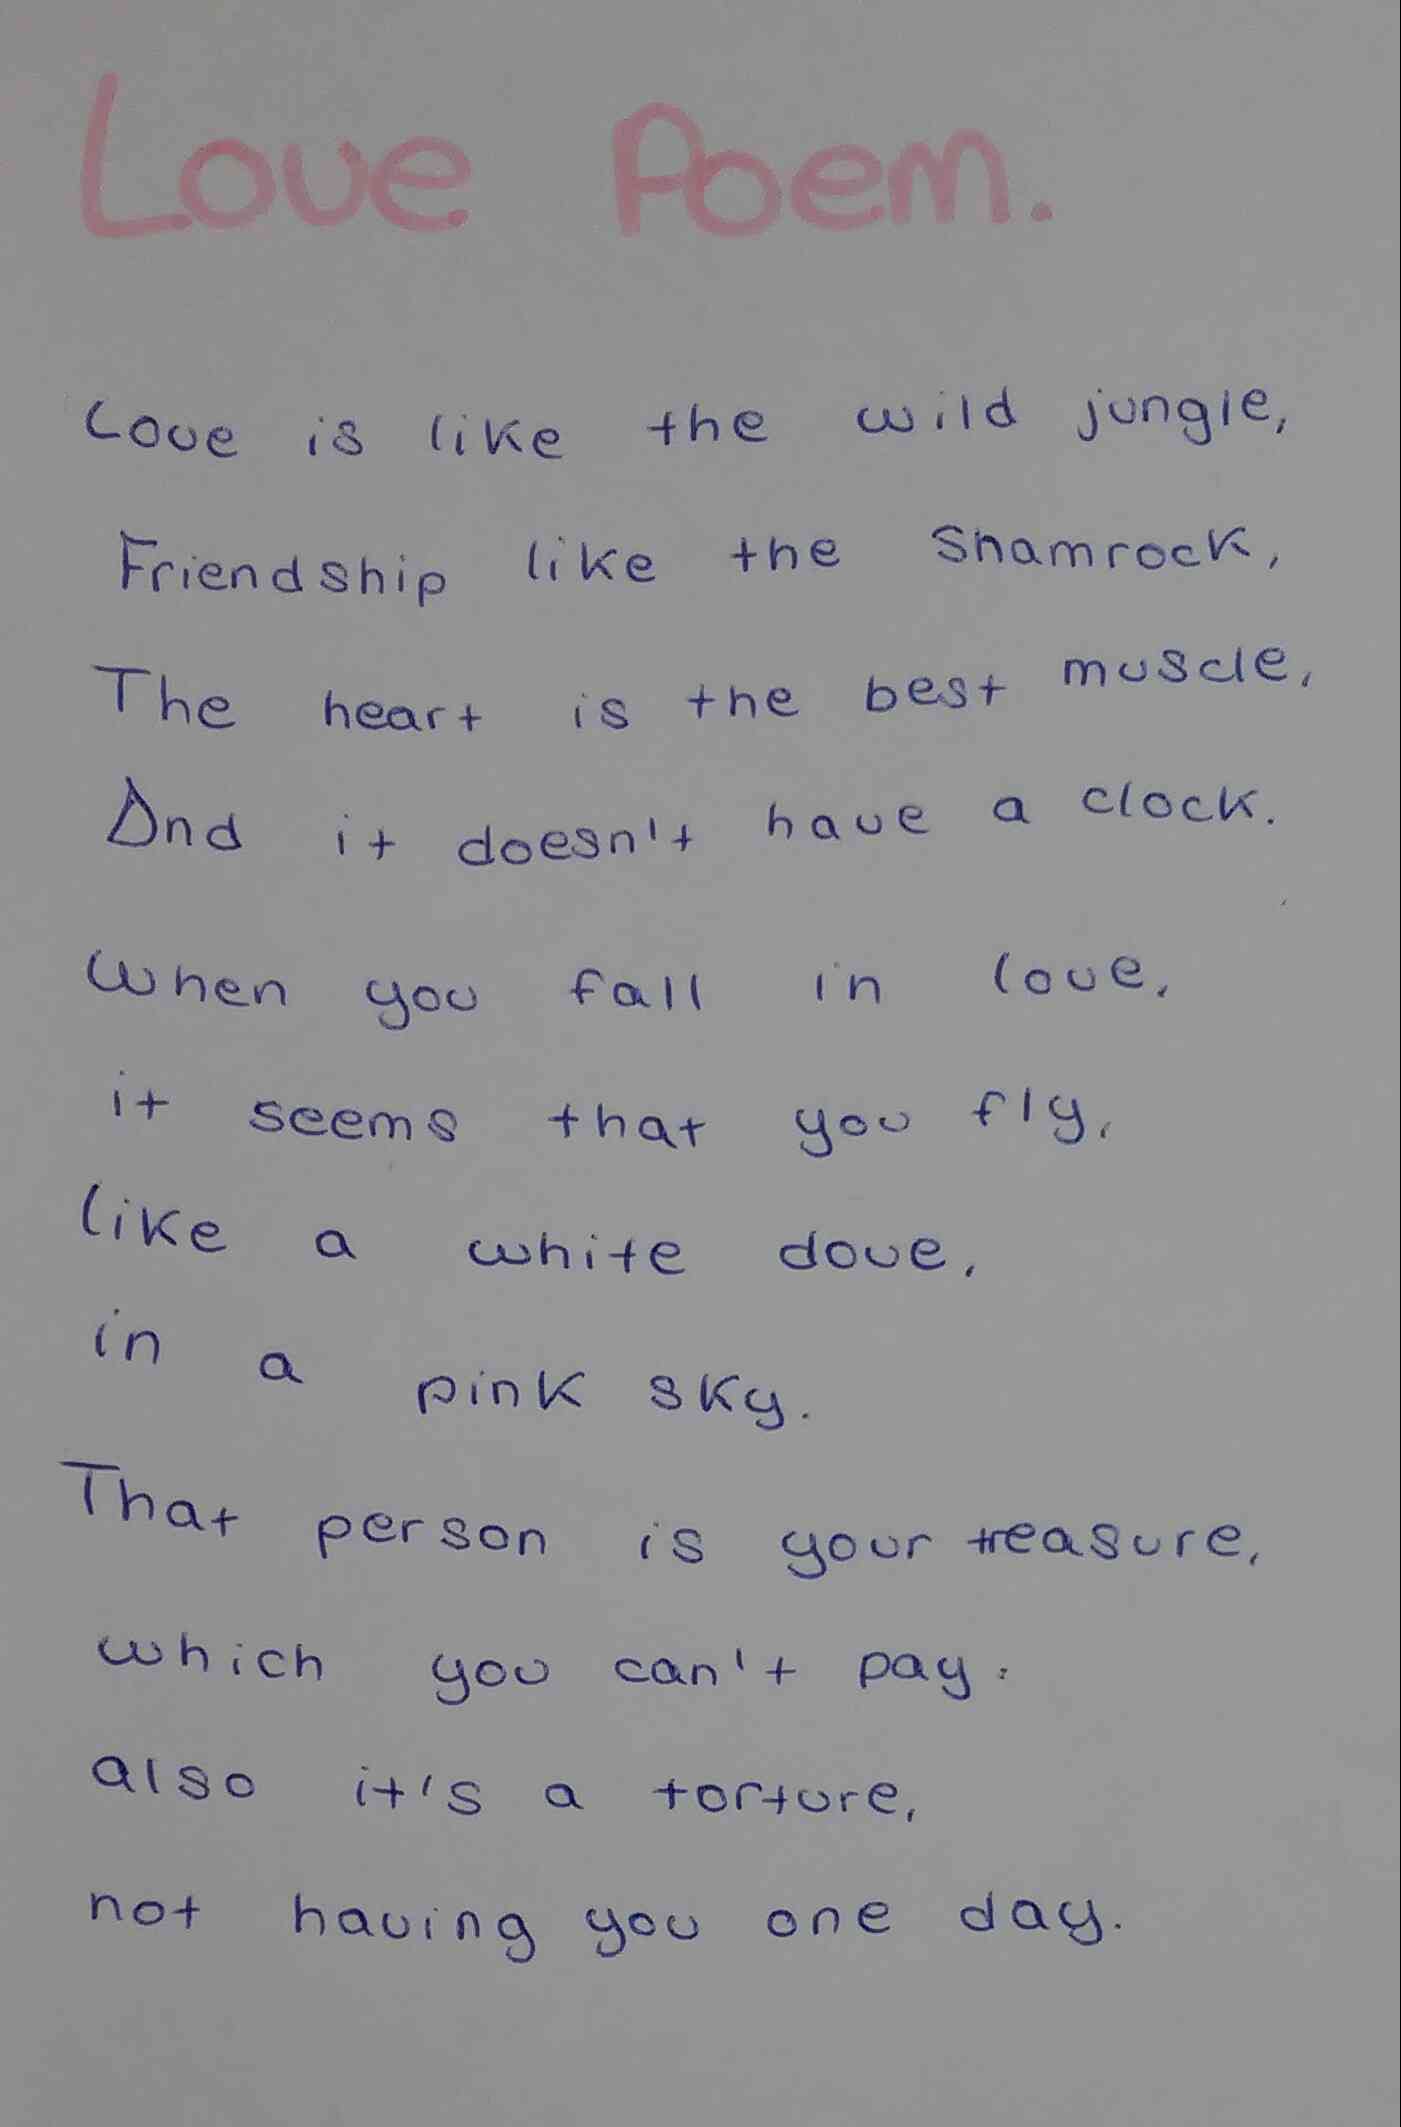 Love Poem.
Love is like the wild jungle,
Friendship like the Shamrock,
The heart is the best muscle,
And it doesn't have a clock.
When you fall in love,
it seems that you fly,
like a white dove,
in a pink sky.
That person is your treasure,
which you can't pay:
also it's a torture,
not having you one day.